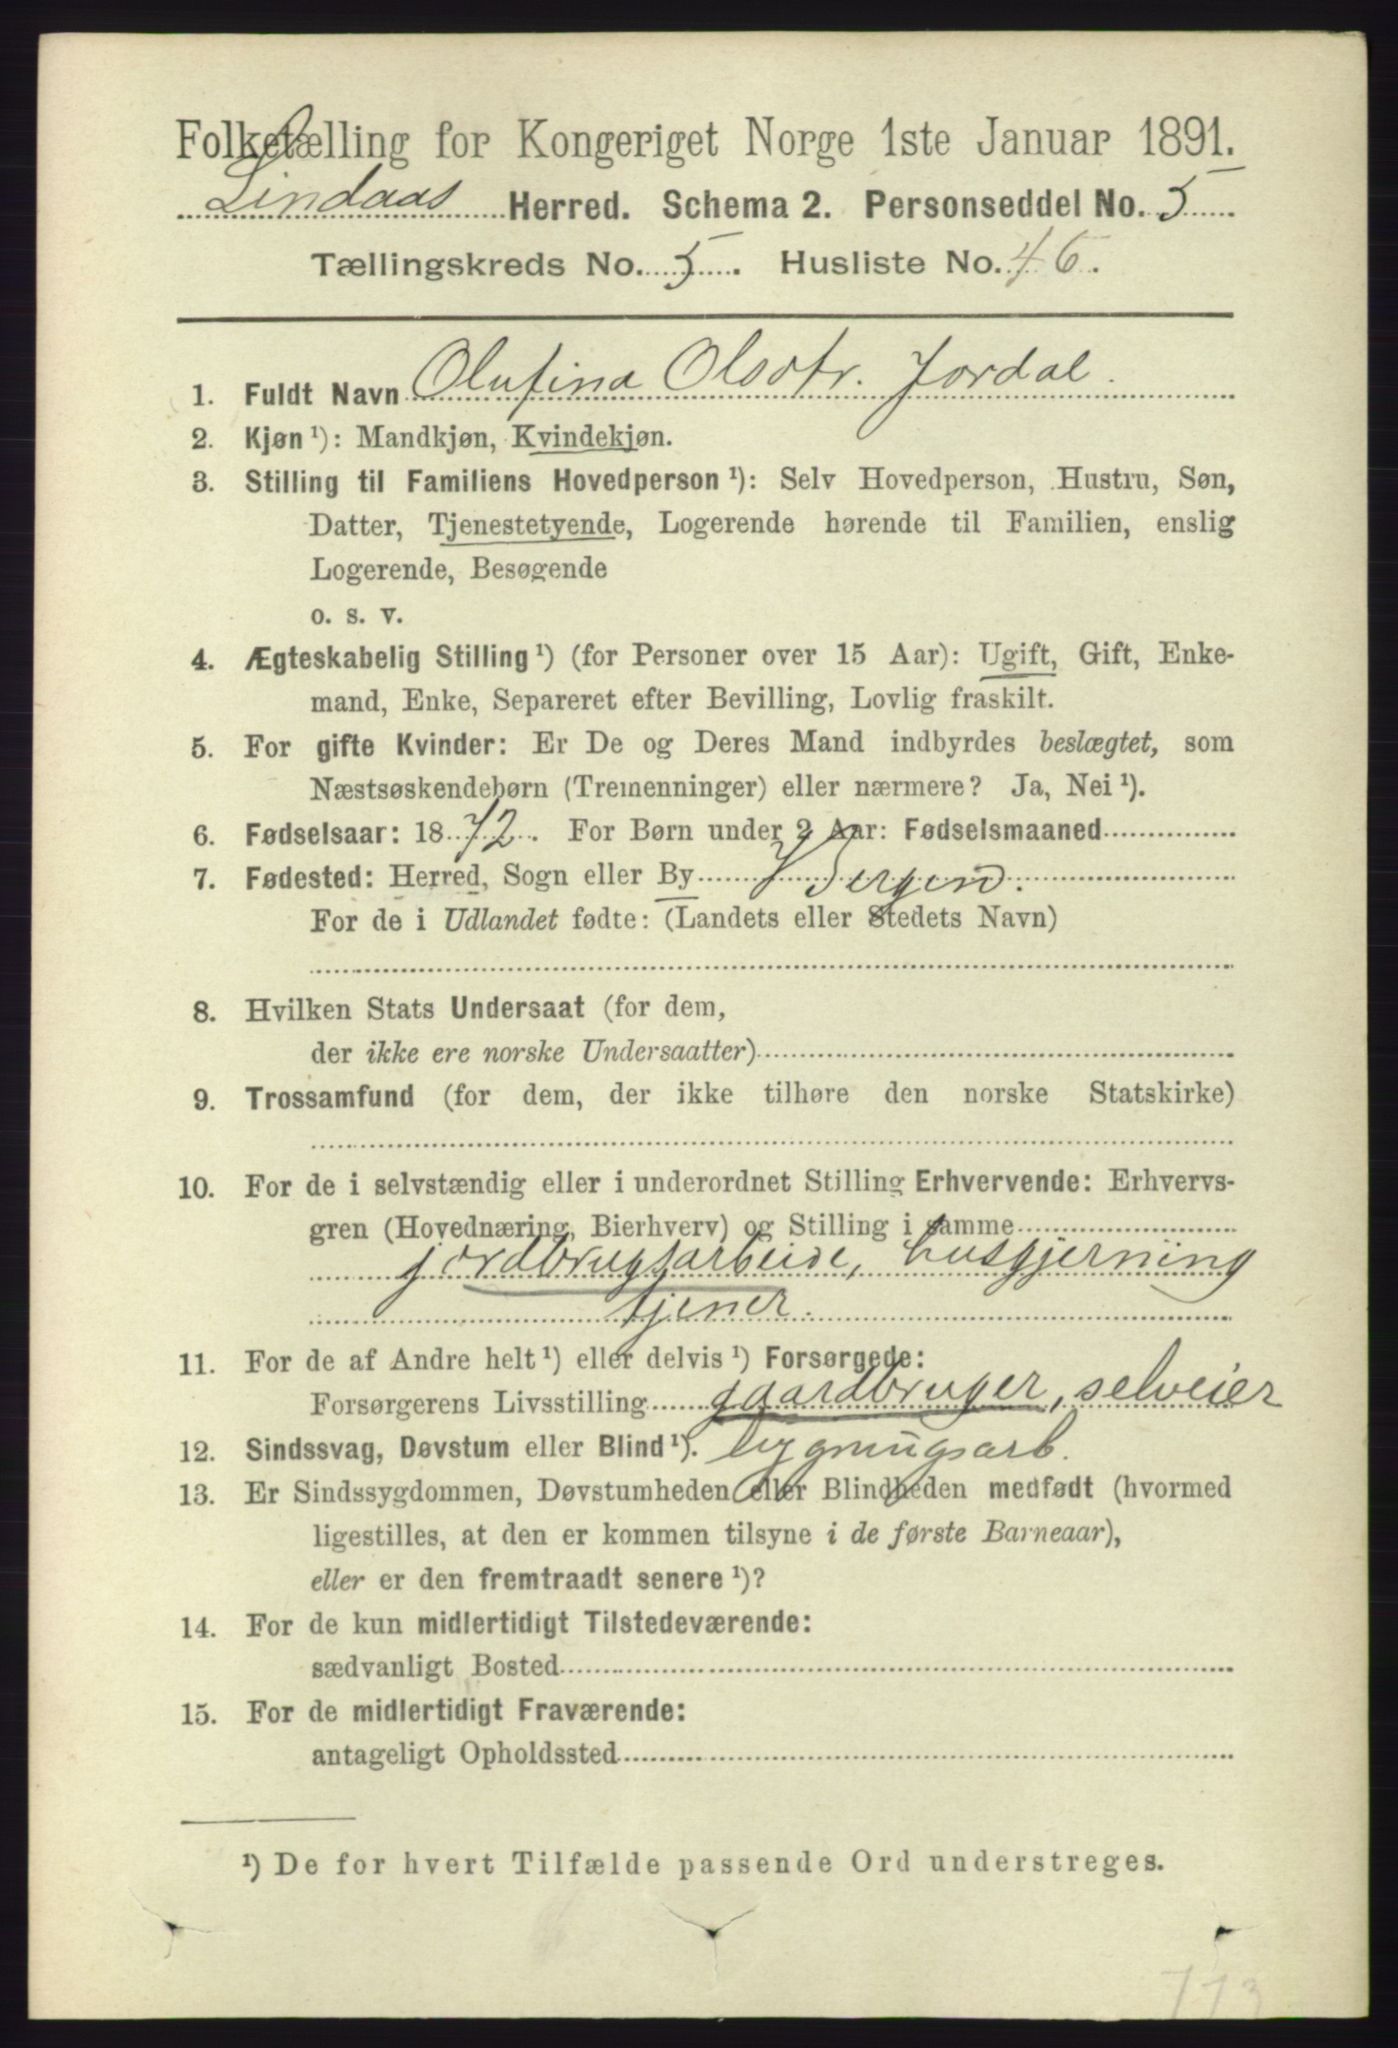 Folketælling for Kongeriget Norge 1ste Januar 1891.
Lindaas Herred. Schema 2. Personseddel No. 5
Tællingskreds No. 5. Husliste No. 46.
1. Fuldt Navn Olufina Olsdtr. Jordal.
2. Kjøn ¹): Mandkjøn, Kvindekjøn.
3. Stilling til Familiens Hovedperson ¹): Selv Hovedperson, Hustru, Søn,
Datter, Tjenestetyende, Logerende hørende til Familien, enslig
Logerende, Besøgende
o. s. v.
4. Ægteskabelig Stilling ¹) (for Personer over 15 Aar): Ugift, Gift, Enke-
mand, Enke, Separeret efter Bevilling, Lovlig fraskilt.
5. For gifte Kvinder: Er De og Deres Mand indbyrdes beslægtet, som
Næstsøskendebørn (Tremenninger) eller nærmere? Ja, Nei ¹).
6. Fødselsaar: 1872. For Børn under 2 Aar: Fødselsmaaned
7. Fødested: Herred, Sogn eller By Bergen.
For de i Udlandet fødte: (Landets eller Stedets Navn)
8. Hvilken Stats Undersaat (for dem,
der ikke ere norske Undersaatter)
9. Trossamfund (for dem, der ikke tilhøre den norske Statskirke)
10. For de i selvstændig eller i underordnet Stilling Erhvervende: Erhvervs-
gren (Hovednæring, Bierhverv) og Stilling i samme
jordbrugsarbeide, husgjerning
tjener.
11. For de af Andre helt ¹) eller delvis ¹) Forsørgede:
Forsørgerens Livsstilling gaardbruger, selveier
12. Sindssvag, Døvstum eller Blind ¹). bygningsarb.
13. Er Sindssygdommen, Døvstumheden eller Blindheden medfødt (hvormed
ligestilles, at den er kommen tilsyne i de første Barneaar),
eller er den fremtraadt senere ¹)?
14. For de kun midlertidigt Tilstedeværende:
sædvanligt Bosted
15. For de midlertidigt Fraværende:
antageligt Opholdssted
¹) De for hvert Tilfælde passende Ord understreges.
773